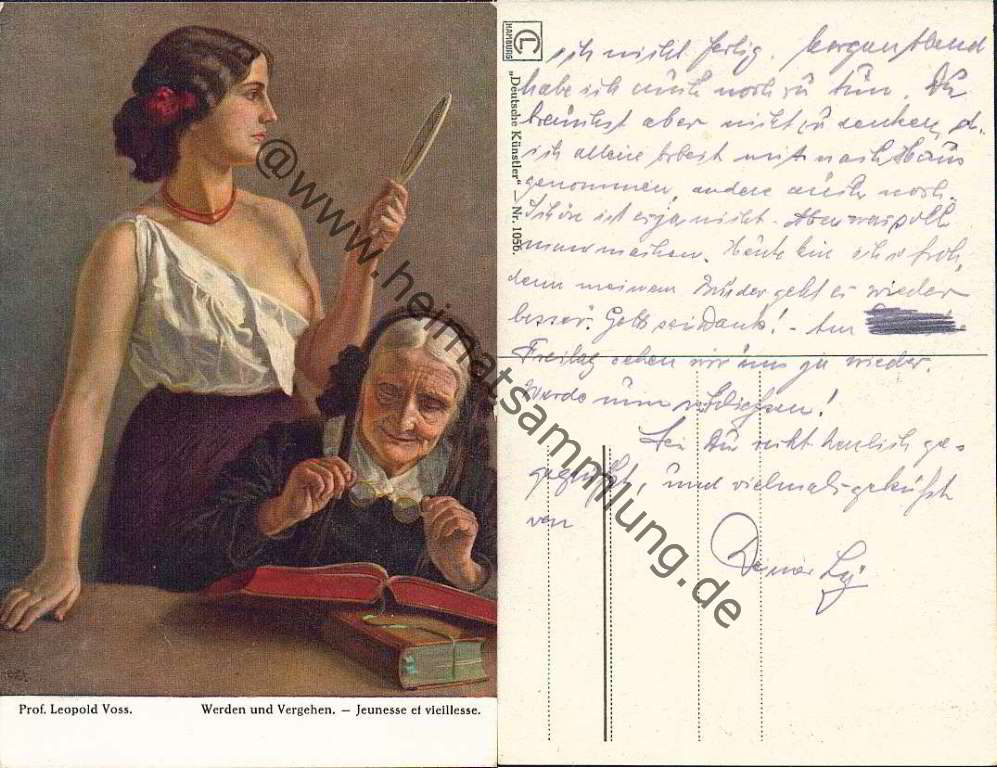 Prof. Leopold Voss. Werden und Vergehen. — Jeunesse et vieillesse.
@www.heimatsammlung.de
CL
HAMBURG
„Deutsche Künstler“ — Nr. 1056.
ich nicht fertig. Morgen Abend
habe ich auch noch zu tun. Du
brauchst aber nicht zu denken, d.
ich alleine Arbeit mit nach Haus
genommen, andere auch noch.
Schön ist es ja nicht. Aber was soll
man machen. Heute bin ich so froh,
denn meinem Bruder geht es wieder
besser. Gott sei Dank! - Am
Freitag sehen wir uns ja wieder.
Werde nun schließen!
Sei Du recht herzlich ge-
gegrüßt, und vielmals geküßt
von
Deiner